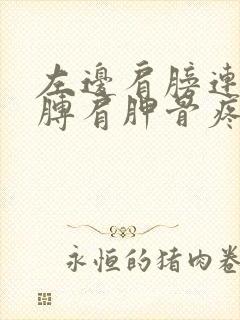 左邊肩膀連
膊肩胛骨疼
永恒的猪肉卷